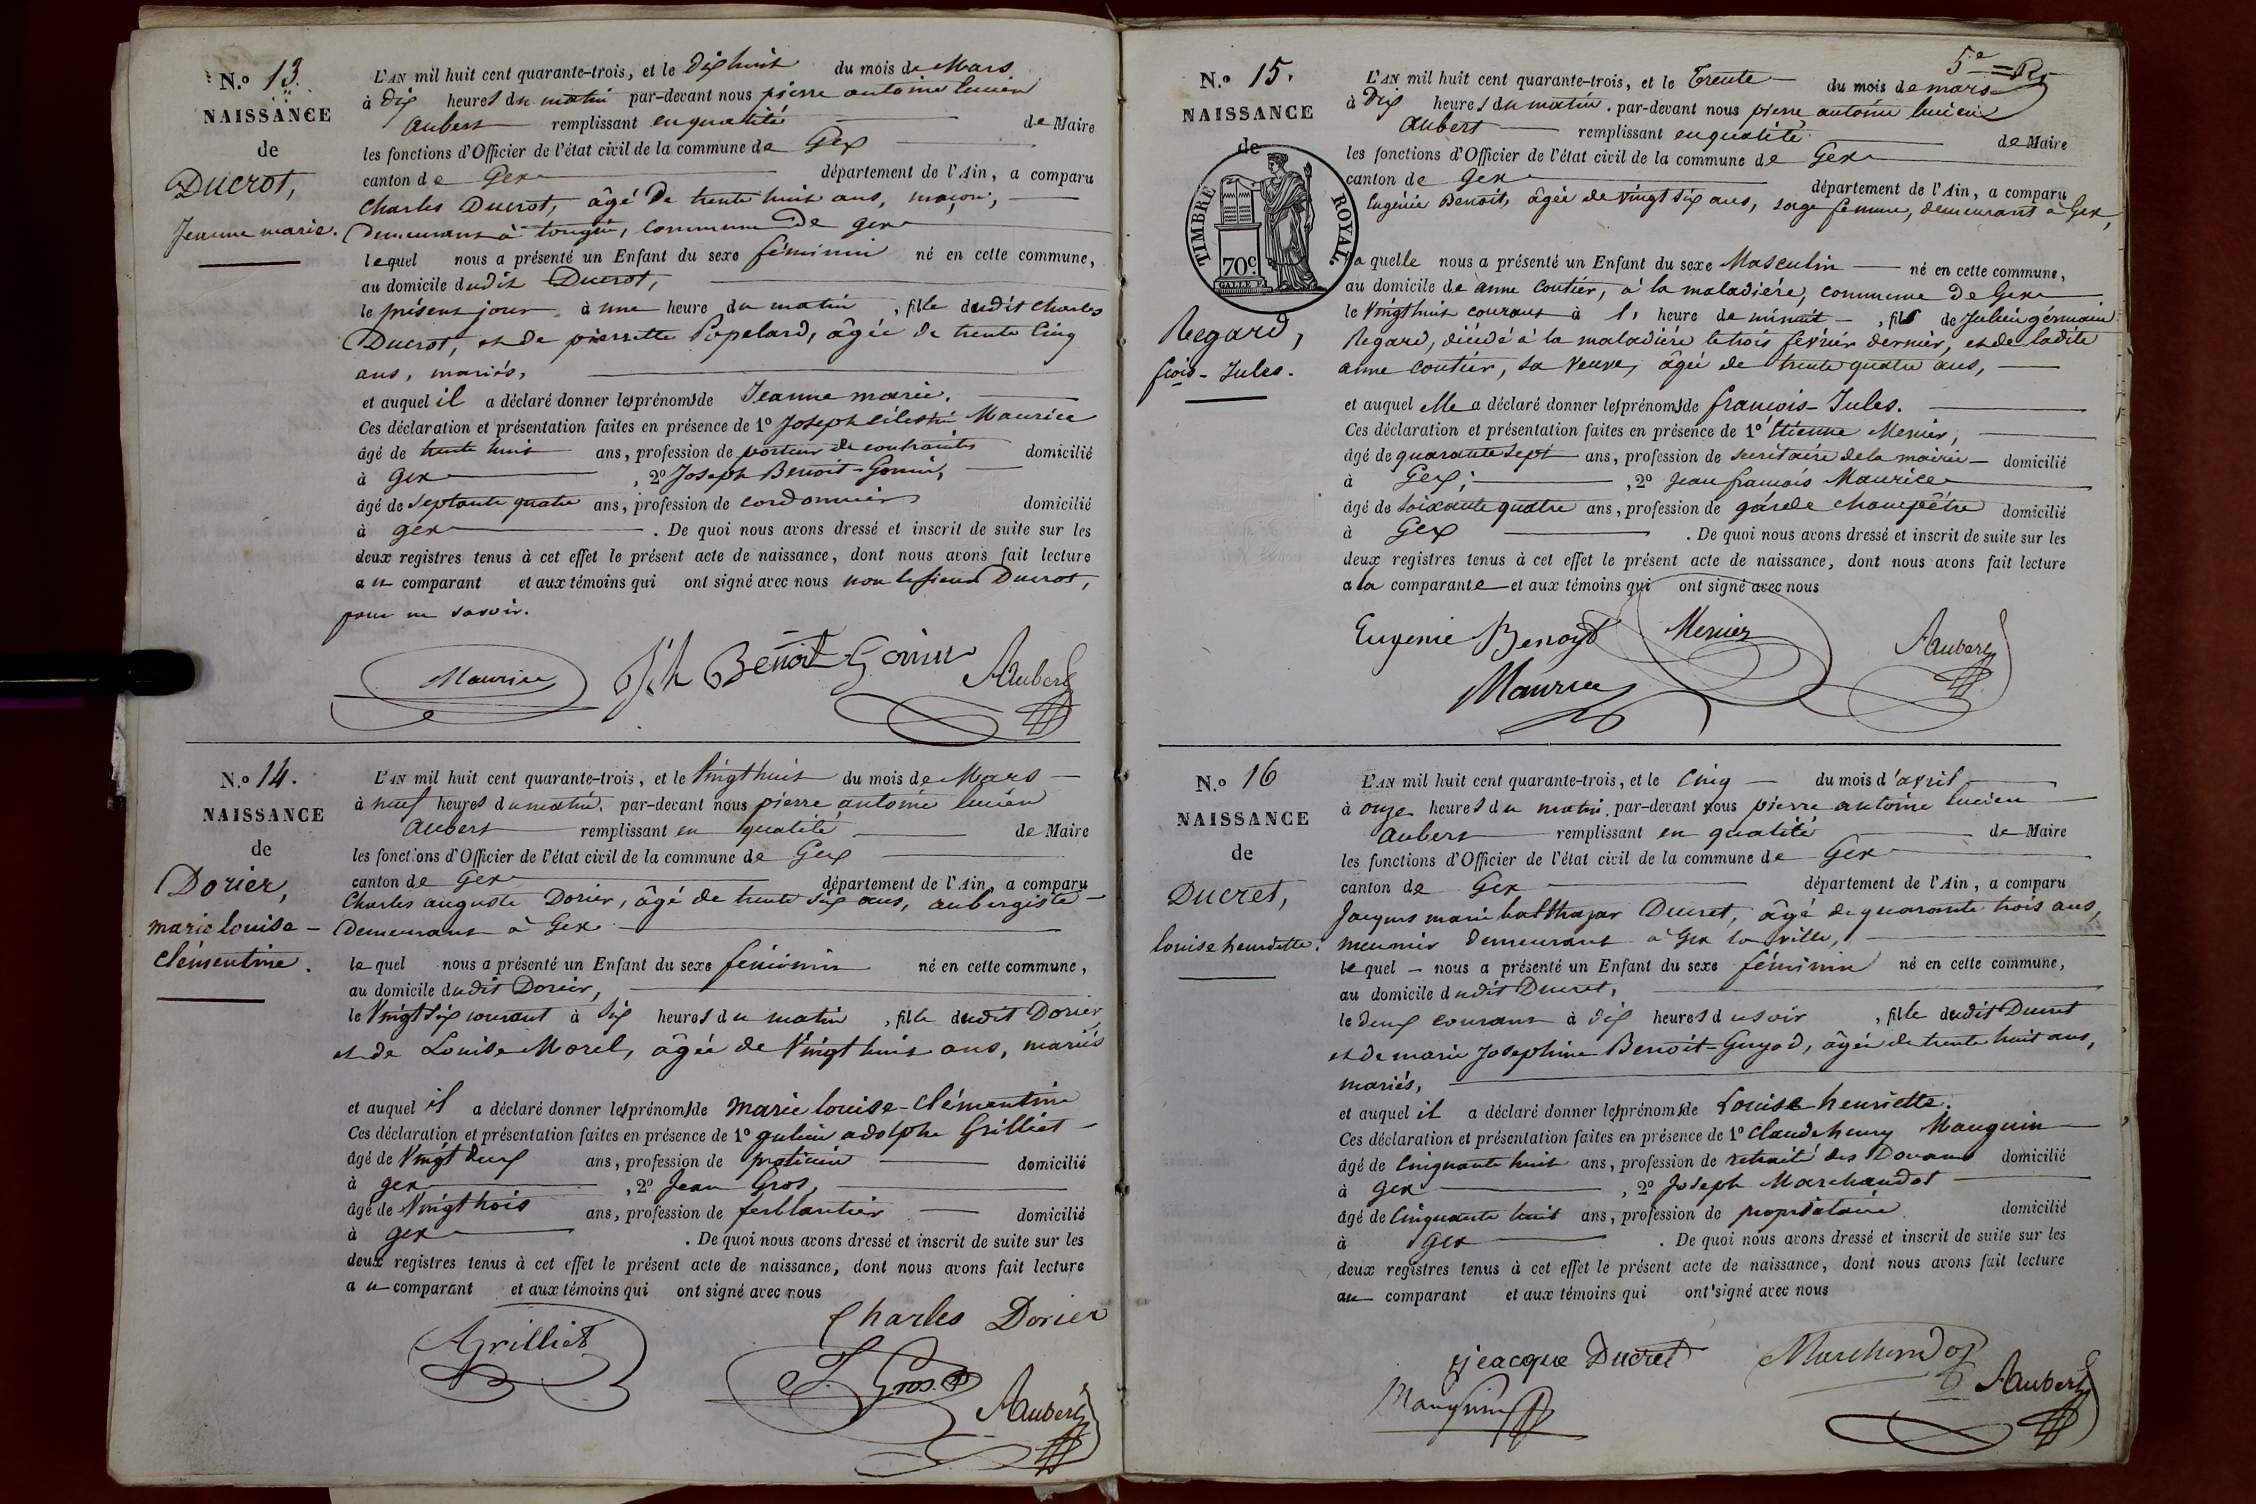 N.o 13.
NAISSANCE
de
Ducrot,
Jeanne marie.
L'AN mil huit cent quarante-trois, et le dixhuit du mois de Mars
à dix heures du matin par-devant nous pierre antoine lucien
aubert remplissant en qualité de Maire
les fonctions d'Officier de l'état civil de la commune de Gex
canton de Gex département de l'Ain, a comparu
Charles Ducrot, âgé de trente huit ans, maçon,
demeurant à tougin, commune de gex
lequel nous a présenté un Enfant du sexe féminin né en cette commune,
au domicile dudit Ducrot,
le présent jour à une heure du matin, fille dudit Charles
Ducrot, et de pierrette Popelard, âgée de trente cinq
ans, mariés,
et auquel il a déclaré donner les prénoms de Jeanne marie.
Ces déclaration et présentation faites en présence de 1o Joseph célestin Maurice
âgé de trente huit ans, profession de porteur de contraintes domicilié
à Gex, 2o Joseph Benoit-Gonin,
âgé de septante quatre ans, profession de cordonnier domicilié
à gex. De quoi nous avons dressé et inscrit de suite sur les
deux registres tenus à cet effet le présent acte de naissance, dont nous avons fait lecture
au comparant et aux témoins qui ont signé avec nous non le sieur Ducrot,
pour ne savoir.
Maurice Jph Benoit Gonin Aubert
N.o 14.
NAISSANCE
de
Dorier,
marie louise-
clémentine.
L'AN mil huit cent quarante-trois, et le Vingthuit du mois de Mars
à neuf heures du matin, par-devant nous pierre antoine lucien
aubert remplissant en qualité de Maire
les fonctions d'Officier de l'état civil de la commune de Gex
canton de Gex département de l'Ain, a comparu
Charles auguste Dorier, âgé de trente six ans, aubergiste
demeurant à Gex
lequel nous a présenté un Enfant du sexe féminin né en cette commune,
au domicile dudit Dorier,
le Vingt six courant à six heures du matin, fille dudit Dorier
et de Louise Morel, âgée de Vingt huit ans, mariés
et auquel il a déclaré donner les prénoms de marie louise-clémentine
Ces déclaration et présentation faites en présence de 1o julien adolphe Grilliet
âgé de Vingt deux ans, profession de praticien domicilié
à gex, 2o Jean Gros,
âgé de Vingt trois ans, profession de ferblantier domicilié
à gex. De quoi nous avons dressé et inscrit de suite sur les
deux registres tenus à cet effet le présent acte de naissance, dont nous avons fait lecture
au comparant et aux témoins qui ont signé avec nous
Charles Dorier
AGrilliet J. Gros Aubert
5e
N.o 15.
NAISSANCE
de
TIMBRE ROYAL.
70c
Regard,
fçois-Jules.
L'AN mil huit cent quarante-trois, et le Trente du mois de mars
à Dix heures du matin, par-devant nous pierre antoine lucien
Aubert remplissant en qualité de Maire
les fonctions d'Officier de l'état civil de la commune de Gex
canton de Gex département de l'Ain, a comparu
Eugénie Benoit, âgée de vingt six ans, sage femme, demeurant à Gex,
laquelle nous a présenté un Enfant du sexe Masculin né en cette commune,
au domicile de anne coutier, à la maladière, commune de Gex
le Vingthuit courant à 1, heure de minuit, fils de Julien germain
Regard, décédé à la maladière le trois février dernier, et de ladite
anne coutier, sa Veuve, âgée de trente quatre ans,
et auquel elle a déclaré donner les prénoms de francois-Jules.
Ces déclaration et présentation faites en présence de 1o Etienne Menier,
âgé de quarante sept ans, profession de secrétaire de la mairie domicilié
à Gex; 2o Jean francois Maurice
âgé de soixante quatre ans, profession de garde champêtre domicilié
à Gex. De quoi nous avons dressé et inscrit de suite sur les
deux registres tenus à cet effet le présent acte de naissance, dont nous avons fait lecture
a la comparante et aux témoins qui ont signé avec nous
Eugenie Benoit Menier Aubert
Maurice
N.o 16
NAISSANCE
de
Ducret,
louise henriette.
L'AN mil huit cent quarante-trois, et le cinq du mois d'avril
à onze heures du matin, par-devant nous pierre antoine lucien
aubert remplissant en qualité de Maire
les fonctions d'Officier de l'état civil de la commune de Gex
canton de Gex département de l'Ain, a comparu
Jacques marie balthazar Ducret, âgé de quarante trois ans,
meunier demeurant à Gex la ville,
lequel nous a présenté un Enfant du sexe féminin né en cette commune,
au domicile dudit Ducret,
le deux courant à dix heures du soir, fille dudit Ducret
et de marie Josephine Benoit-Guyod, âgée de trente huit ans,
mariés,
et auquel il a déclaré donner les prénoms de Louise henriette.
Ces déclaration et présentation faites en présence de 1o Claude henry Mauguin
âgé de Cinquante huit ans, profession de retraité des Douanes domicilié
à gex, 2o Joseph Marchandot
âgé de Cinquante huit ans, profession de propriétaire domicilié
à gex. De quoi nous avons dressé et inscrit de suite sur les
deux registres tenus à cet effet le présent acte de naissance, dont nous avons fait lecture
au comparant et aux témoins qui ont signé avec nous
jeacque Ducret Marchandot
Mauguin Aubert